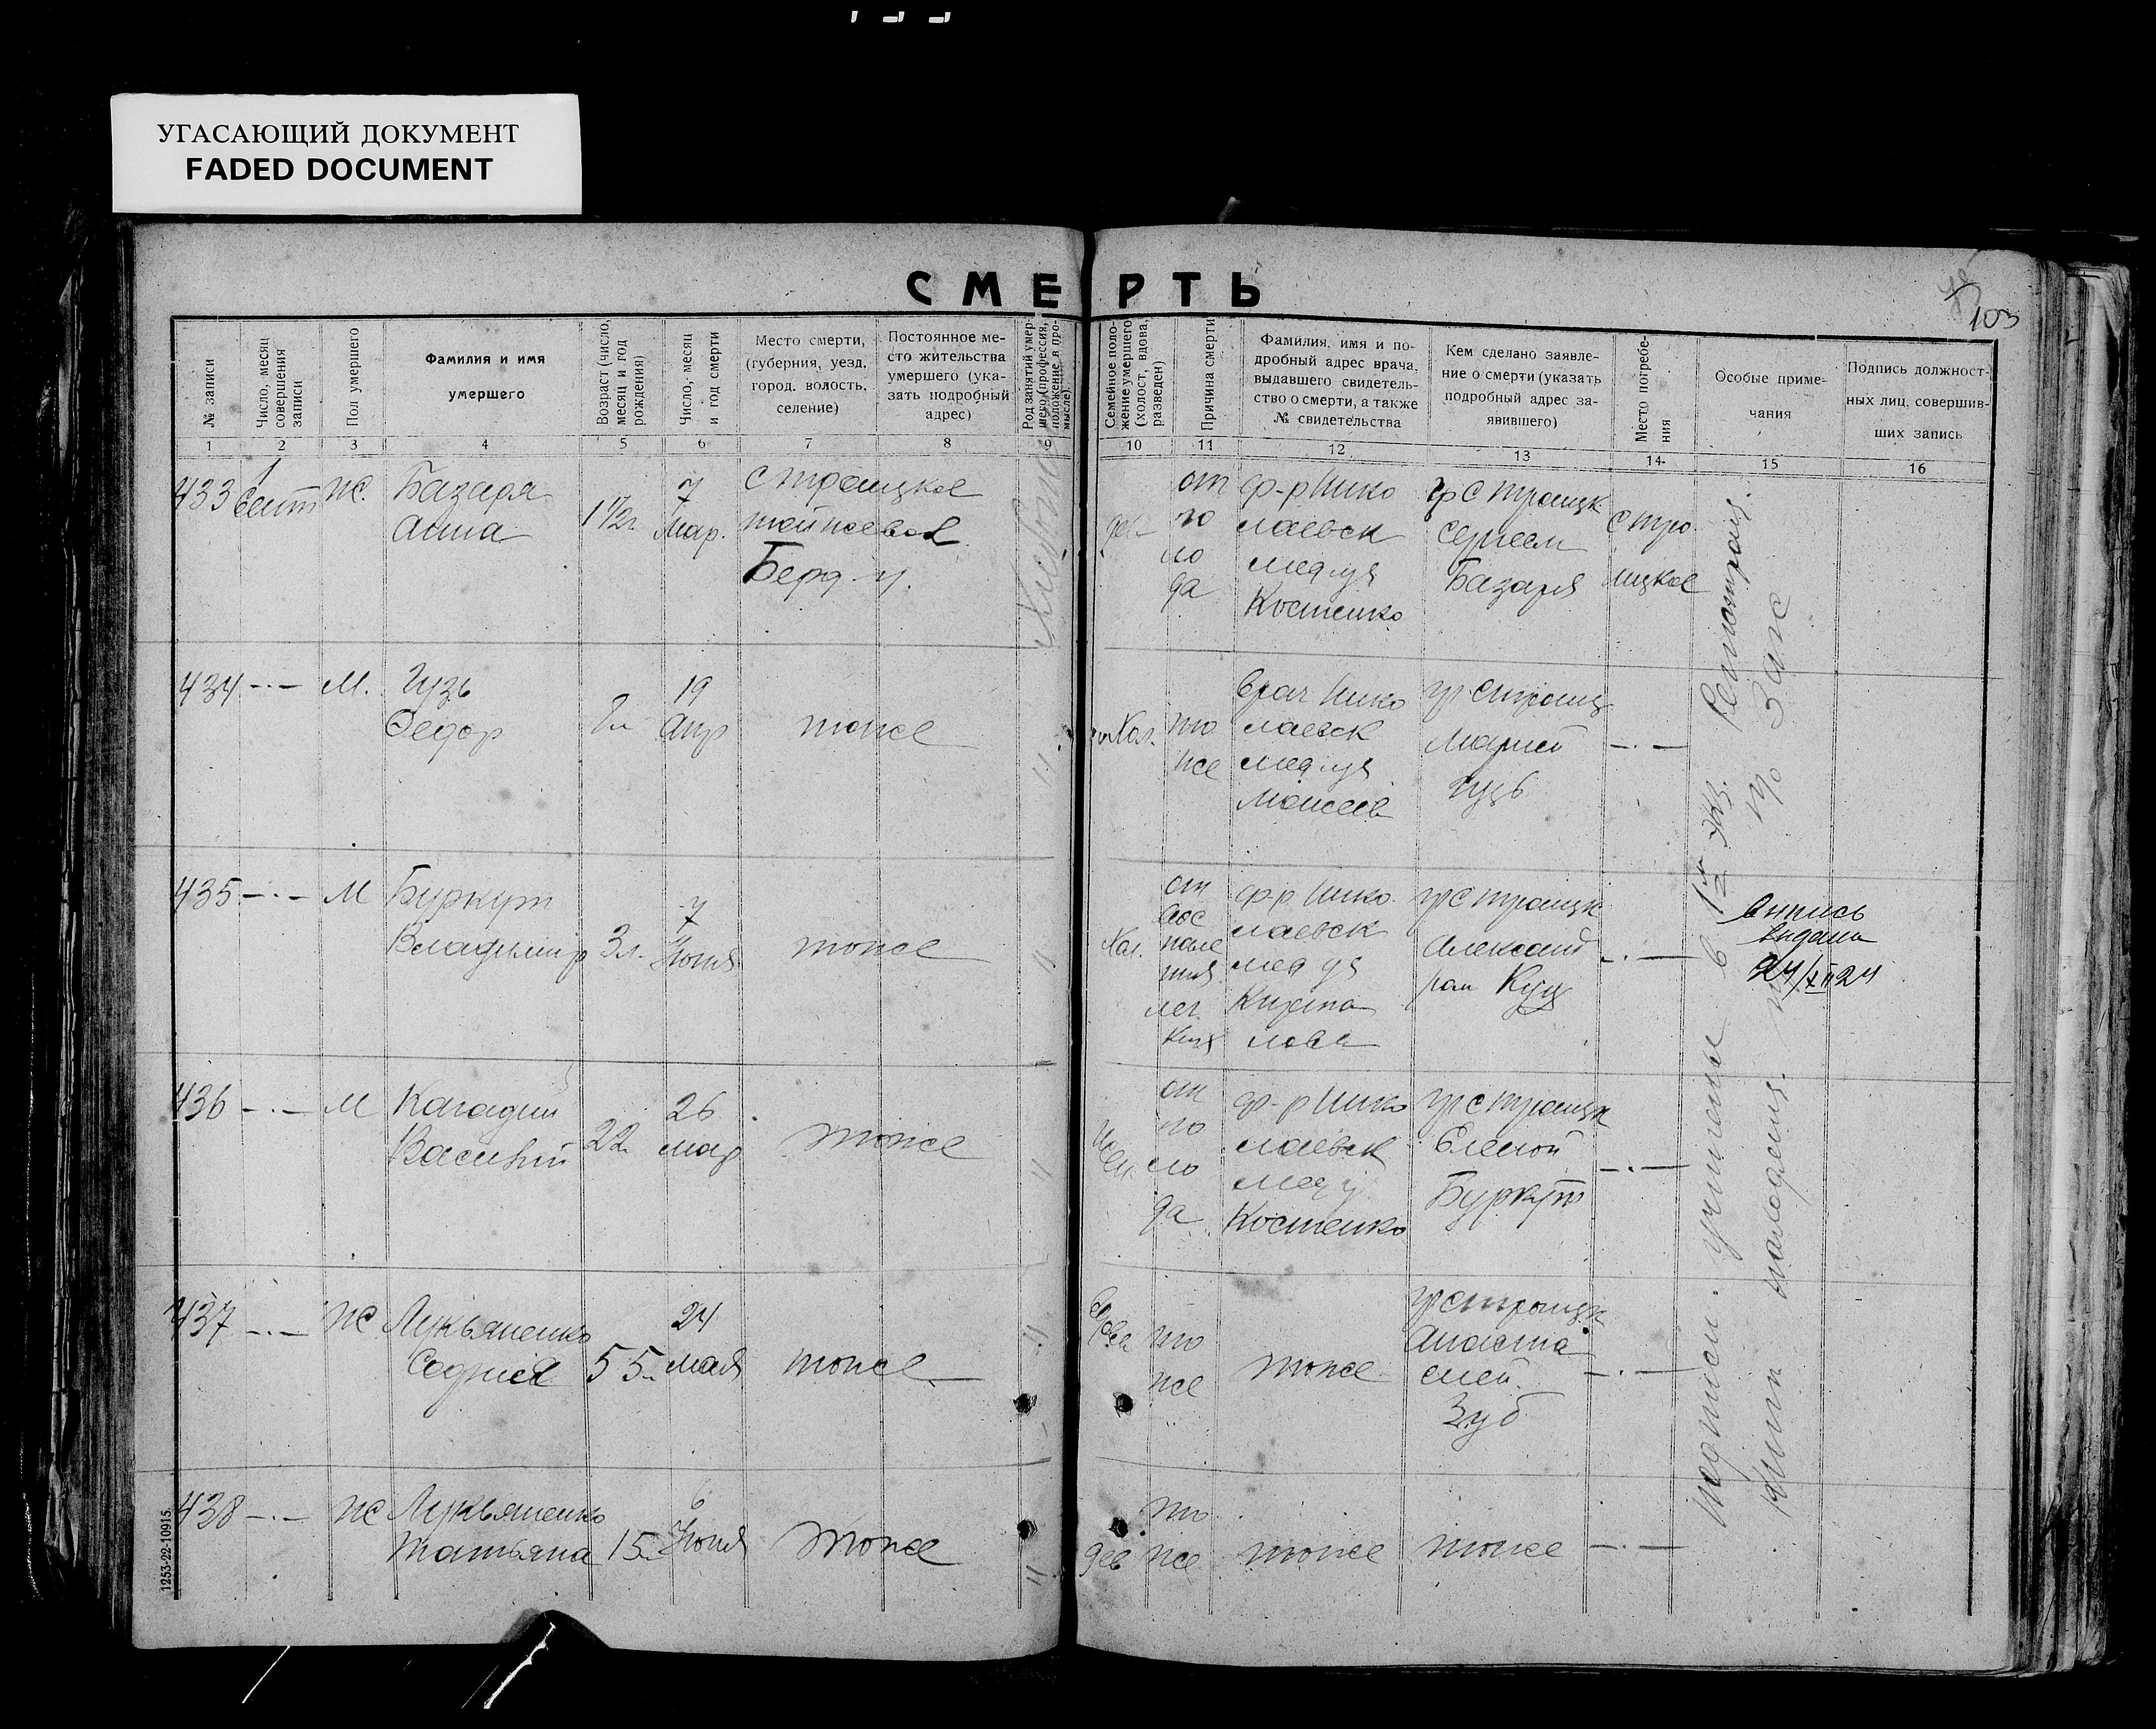 УГАСАЮЩИЙ ДОКУМЕНТ
FADED DOCUMENT
СМЕРТЬ
103
№ записи
Число, месяц
совершения
записи
Пол умершего
Фамилия и имя
умершего
Возраст (число,
месяц и год
рождения)
Число, месяц
и год смерти
Место смерти,
(губерния, уезд,
город, волость,
селение)
Постоянное ме-
сто жительства
умершего (ука-
зать подробный
адрес)
Род занятий умер-
шего (профессия,
положение в про-
мысле).
Семейное поло-
жение умершего
(холост, вдова,
разведен)
Причина смерти
Фамилия, имя и по-
дробный адрес врача,
выдавшего свидетель-
ство о смерти, а также
№ свидетельства
Кем сделано заявле-
ние о смерти (указать
подробный адрес за-
явившего)
Место погребе-
ния
Особые приме-
чания
Подпись должност-
ных лиц, совершив-
ших запись
1 2 3 4 5 6 7 8 9 10 11 12 13 14 15 16
433
1
Сент
ж.
Базаря
Анна
1 1/2 г.
7
Мар.
с Троицкое
Берд. у.
дев
от
го
ло
да
ф-р Нико
лаевск
мед. уч
Костенко
гр с Троицк
Сергеем
Базаря
с Тро
ицкое
434 -·- М.
Гузь
Федор
19
Апр
тоже
"
Хол.
то
же
врач Нико
лаевск
мед. уч
гр с Троиц
Марией
Гузь
-·-
435 -·- М
Буркут
Владимир
3 л.
7
Июня
тоже
"
Хол.
от
вос
пале
ния
лег
ких
ф-р Нико
лаевск
мед уч
гр с Троицк
Александ
ром Куц
-·-
выпись
выдана
24/XII 24
436 -·- М
Кагадий
Василий
22
26
мая
тоже
"
от
го
ло
да
ф-р Нико
лаевск
мед у
Костенко
гр с Троицк
Еленой
Буркут
-·-
437 -·- ж
Лукьяненко
София
55
24
мая
тоже
"
то
же
тоже
гр с Троицк
Анаста
сией
Зуб
-·-
438 -·- ж
Лукьяненко
Татьяна
15
6
Июня
тоже
"
дев
то
же
тоже
тоже
-·-
подписи учинены в 1м экз. Регистрац.
книги находящ. по Загс
1253-22-10915